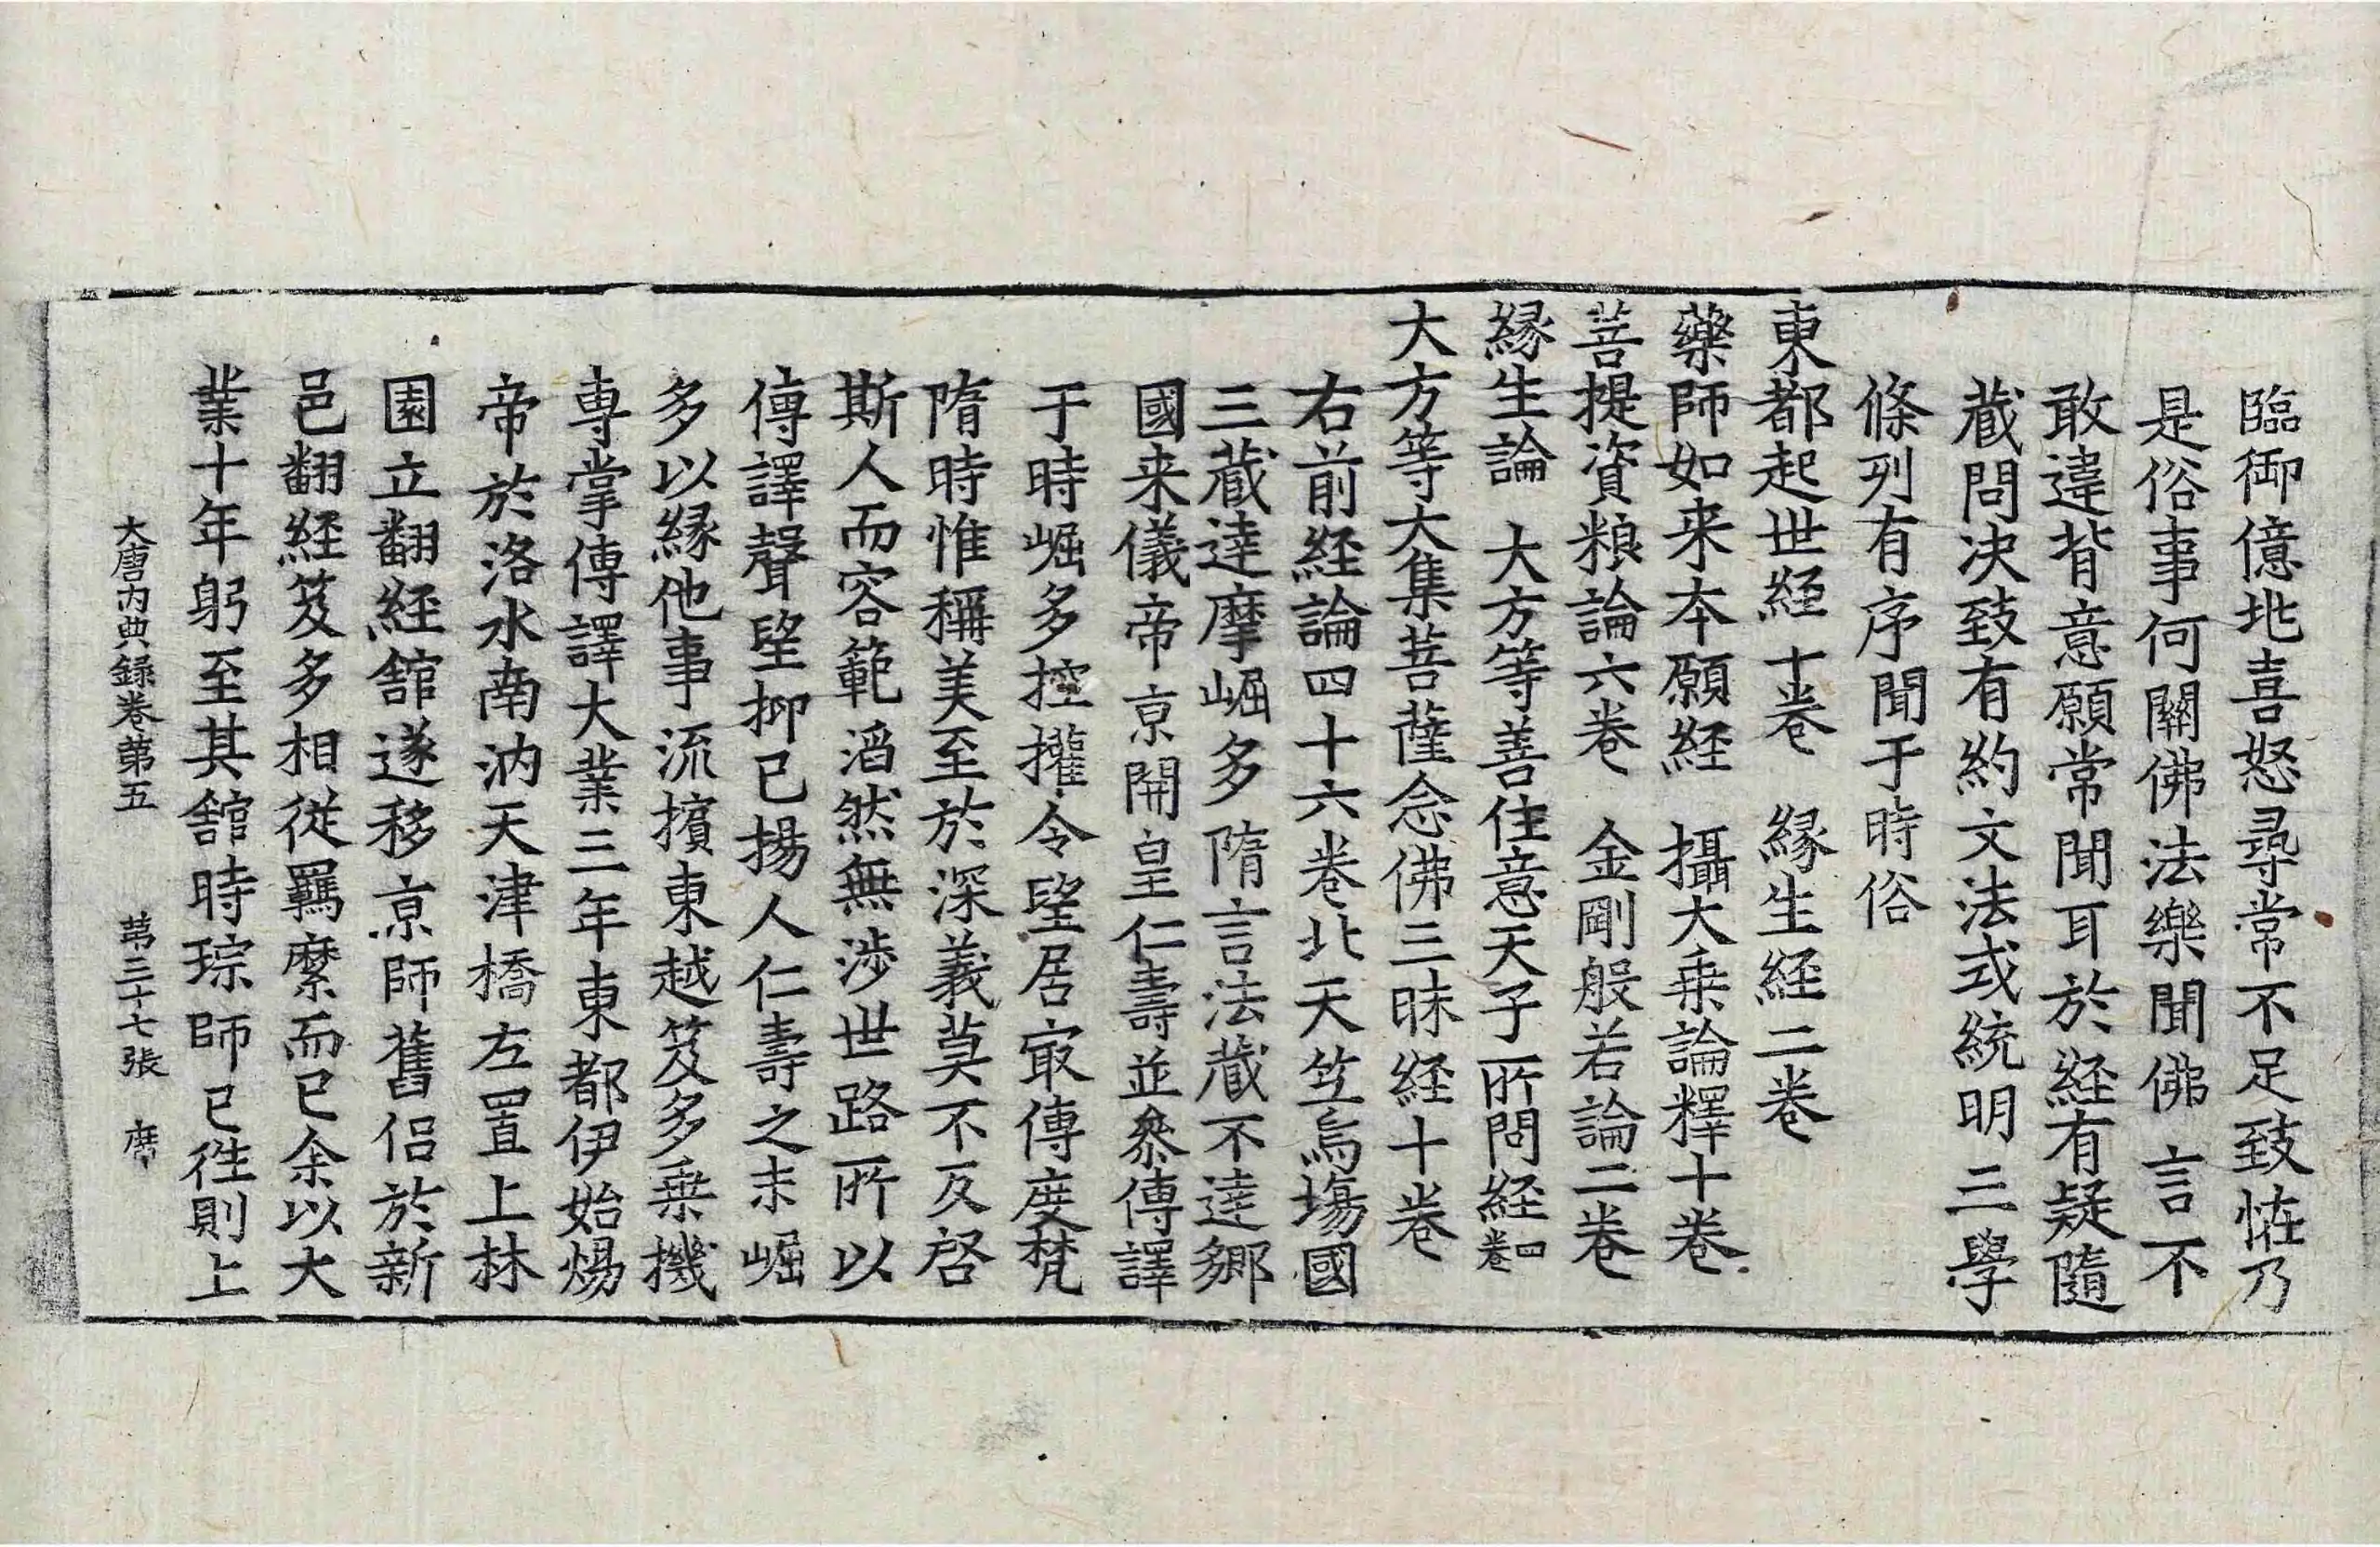 臨御億兆喜怒尋常不足致恠乃
是俗事何關佛法樂聞佛言不
敢違背意願常聞耳於経有疑隨
藏問決致有約文法或統明三學
條列有序聞于時俗
東都起世經十巻　縁生経二巻
藥師如来本願経　攝大乗論釋十巻
菩提資粮論六巻　金剛般若論二巻
縁生論　大方等善住意天子所問経四巻
大方等大集菩薩念佛三昧経十巻
右前経論四十六巻北天竺烏塲國
三藏達摩崛多隋言法藏不達鄉
國来儀帝京開皇仁壽並叅傳譯
于時崛多控權令望居㝡傳度梵
隋時惟稱美至於深義莫不反啓
斯人而容範滔然無渉世路所以
傳譯聲望抑已揚人仁壽之末崛
多以縁他事流擯東越笈多乗機
専掌傳譯大業三年東都伊始煬
帝於洛水南汭天津橋左置上林
園立翻経舘遂移京師舊侶於新
邑翻経笈多相従羈縻而已余以大
業十年躬至其舘時琮師已徃則上
大唐内典錄巻第五　第三十七張　席